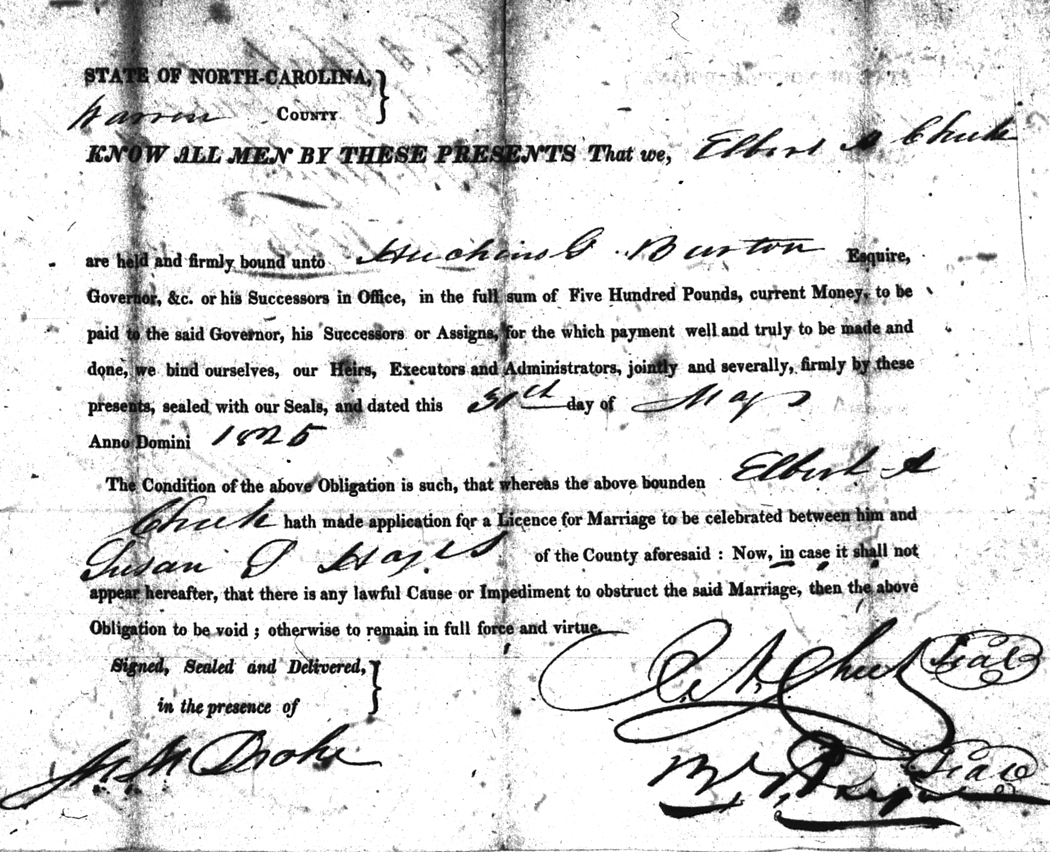 STATE OF NORTH-CAROLINA, }
Warren COUNTY
KNOW ALL MEN BY THESE PRESENTS That we, Elbert A Cheek
are held and firmly bound unto Hutchins G Burton Esquire,
Governor, &c. or his Successors in Office, in the full sum of Five Hundred Pounds, current Money, to be
paid to the said Governor, his Successors or Assigns, for the which payment well and truly to be made and
done, we bind ourselves, our Heirs, Executors and Administrators, jointly and severally, firmly by these
presents, sealed with our Seals, and dated this 31th day of May
Anno Domini 1825
The Condition of the above Obligation is such, that whereas the above bounden Elbert A
Cheek hath made application for a Licence for Marriage to be celebrated between him and
Susan P Hayes of the County aforesaid : Now, in case it shall not
appear hereafter, that there is any lawful Cause or Impediment to obstruct the said Marriage, then the above
Obligation to be void ; otherwise to remain in full force and virtue.
Signed, Sealed and Delivered, }
in the presence of
E. A. Cheek Seal
Seal